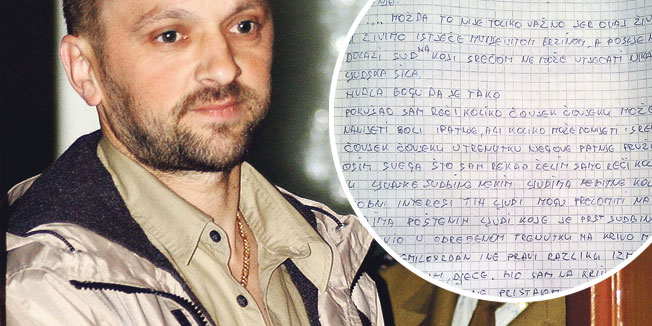 .... MOŽDA TO NIJE TOLIKO VAŽNO JER OVAJ
ŽIVIMO ISTJEČE MUNJEVITOM BRZINOM, A POSLIJE
DOLAZI SUD NA KOJI SREĆOM NE MOŽE UTJECATI
LJUDSKA SILA.
HVALA BOGU DA JE TAKO
POKUŠAO SAM REĆI KOLIKO ČOVJEK ČOVJEKU MOŽE
NANIJETI BOLI I PATNJE, ALI KOLIKO MOŽE DONIJETI I
ČOVJEK ČOVJEKU U TRENUTKU NJEGOVE PATNJE
OSIM SVEGA ŠTO SAM REKAO ŽELIM SAMO REĆI
U LJUDSKE SUDBINE NEKIM LJUDIMA NEBITNE
INTERESI TIH LJUDI MOGU PRELOMITI NA
POŠTENIH LJUDI KOJE JE PRST
U ODREĐENOM TRENUTKU NA KRIVO
NE PRAVI RAZLIKU
DJECE. BIO SAM NA